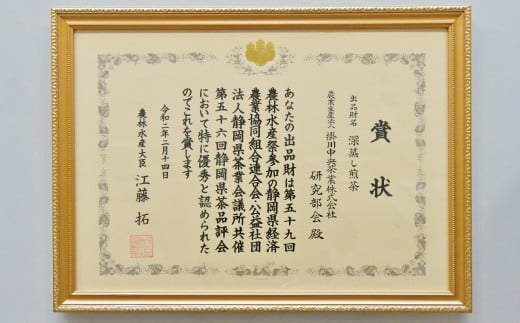 賞状
出品財名 深蒸し煎茶
農業生産法人 掛川中央茶業株式会社
研究部会 殿
あなたの出品財は第五十九回
農林水産祭参加の静岡県経済
農業協同組合連合会・公益社団
法人静岡県茶業会議所共催
第五十六回静岡県茶品評会
において特に優秀と認められた
のでこれを賞します
令和二年二月十四日
農林水産大臣 江藤 拓